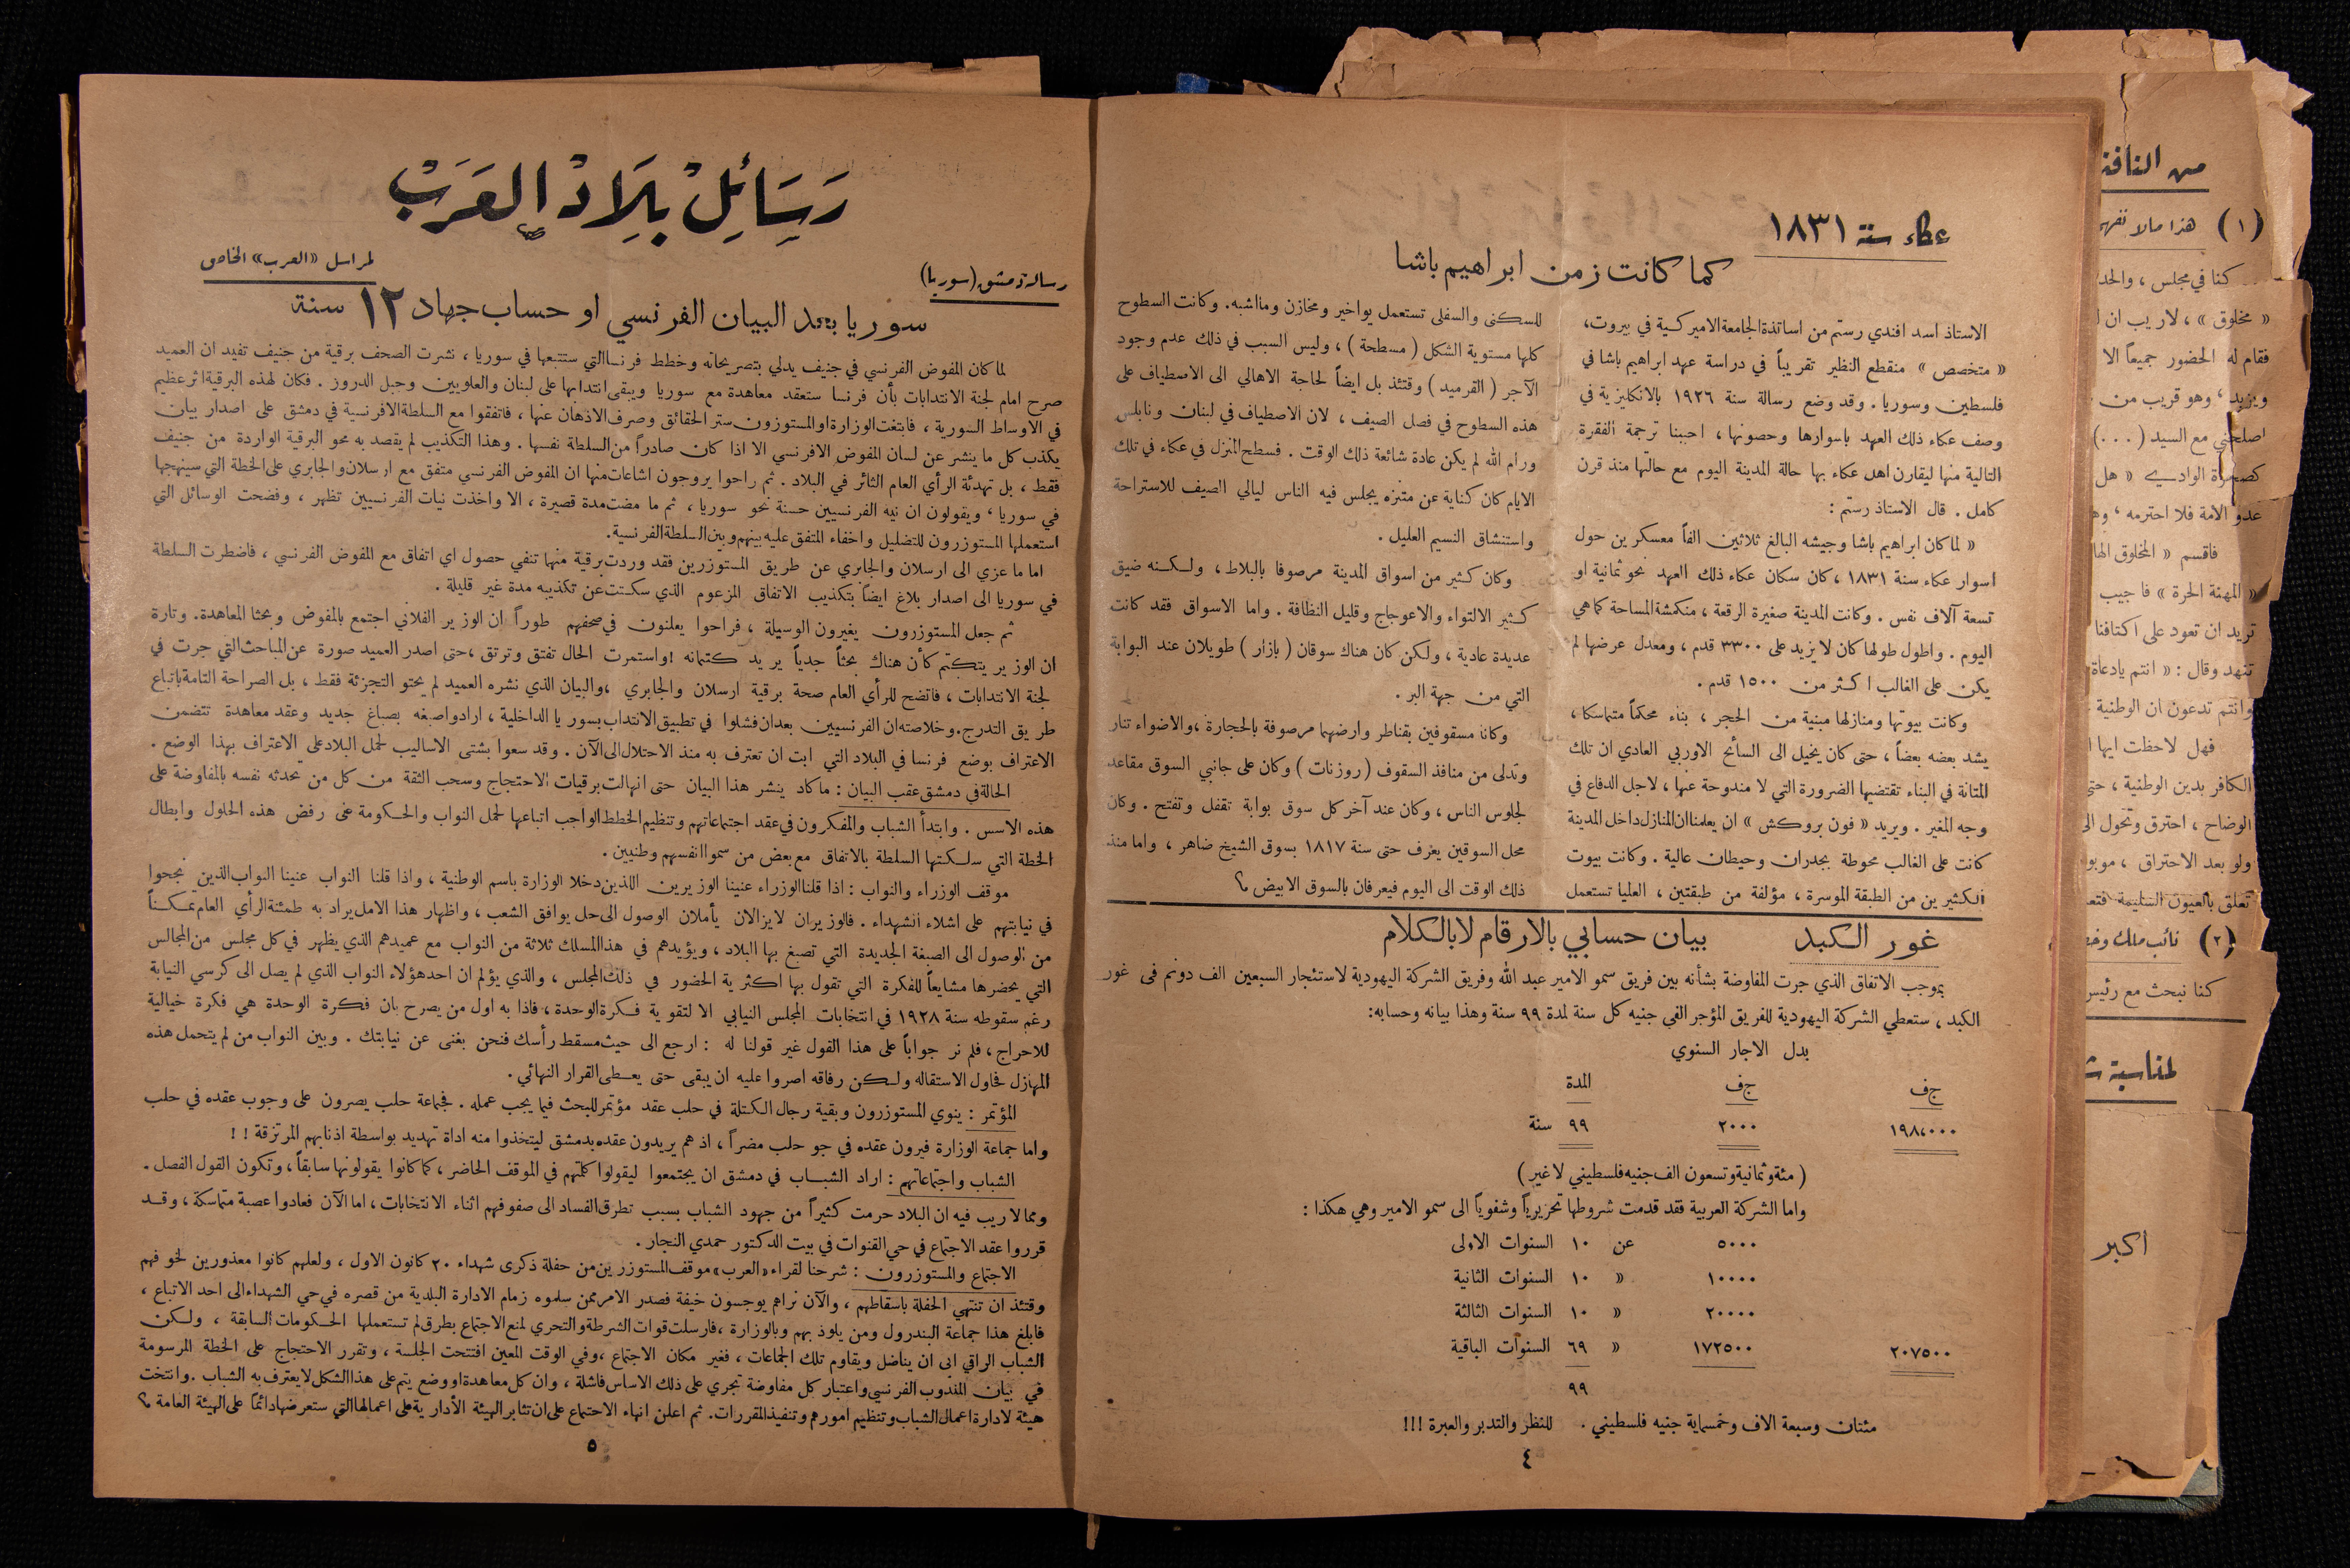 عكاء سنة ١٨٣١
كما كانت زمن ابراهيم باشا
الاستاذ اسد افندي رستم من اساتذة الجامعة الاميركية في بيروت،
« متخصص » منقطع النظير تقريباً في دراسة عهد ابراهيم باشا في
فلسطين وسوريا . وقد وضع رسالة سنة ١٩٢٦ بالانكليزية في
وصف عكاء ذلك العهد باسوارها وحصونها ، احببنا ترجمة الفقرة
التالية منها ليقارن اهل عكاء بها حالة المدينة اليوم مع حالتها منذ قرن
كامل . قال الاستاذ رستم :
« لما كان ابراهيم باشا وجيشه البالغ ثلاثين الفاً معسكرين حول
اسوار عكاء سنة ١٨٣١ ، كان سكان عكاء ذلك العهد نحو ثمانية او
تسعة آلاف نفس . وكانت المدينة صغيرة الرقعة ، منكمشة المساحة كما هي
اليوم . واطول طولها كان لا يزيد على ٣٣٠٠ قدم ، ومعدل عرضها لم
يكن على الغالب اكثر من ١٥٠٠ قدم .
وكانت بيوتها ومنازلها مبنية من الحجر ، بناء محكماً متماسكا ،
يشد بعضه بعضاً ، حتى كان يخيل الى السائح الاوربي العادي ان تلك
المتانة في البناء تقتضيها الضرورة التي لا مندوحة عنها ، لاجل الدفاع في
وجه المغير . ويريد « فون بروكش » ان يعلمنا ان المنازل داخل المدينة
كانت على الغالب محوطة بجدران وحيطان عالية . وكانت بيوت
الكثيرين من الطبقة الموسرة ، مؤلفة من طبقتين ، العليا تستعمل
للسكنى والسفلى تستعمل يواخير ومخازن وما اشبه . وكانت السطوح
كلها مستوية الشكل ( مسطحة ) ، وليس السبب في ذلك عدم وجود
الآجر ( القرميد ) وقتئذ بل ايضاً لحاجة الاهالي الى الاصطياف على
هذه السطوح في فصل الصيف ، لان الاصطياف في لبنان ونابلس
ورام الله لم يكن عادة شائعة ذلك الوقت . فسطح المنزل في عكاء في تلك
الايام كان كناية عن متنزه يجلس فيه الناس ليالي الصيف للاستراحة
واستنشاق النسيم العليل .
وكان كثير من اسواق المدينة مرصوفا بالبلاط ، ولكنه ضيق
كثير الالتواء والاعوجاج وقليل النظافة . واما الاسواق فقد كانت
عديدة عادية ، ولكن كان هناك سوقان ( بازار ) طويلان عند البوابة
التي من جهة البر .
وكانا مسقوفين بقناطر وارضهما مرصوفة بالحجارة ، والاضواء تنار
وتدلى من منافذ السقوف ( روزنات ) وكان على جانبي السوق مقاعد
لجلوس الناس ، وكان عند آخر كل سوق بوابة تقفل وتفتح . وكان
محل السوقين يعرف حتى سنة ١٨١٧ بسوق الشيخ ضاهر ، واما منذ
ذلك الوقت الى اليوم فيعرفان بالسوق الابيض ؟
غور الكبد
بيان حسابي بالارقام لا بالكلام
بموجب الاتفاق الذي جرت المفاوضة بشأنه بين فريق سمو الامير عبد الله وفريق الشركة اليهودية لاستئجار السبعين الف دونم في غور
الكبد ، ستعطي الشركة اليهودية للفريق المؤجر الفي جنيه كل سنة لمدة ٩٩ سنة وهذا بيانه وحسابه:
بدل الاجار السنوي
ج ف ج ف المدة
١٩٨،٠٠٠ ٢٠٠٠ ٩٩ سنة
( مئة وثمانية وتسعون الف جنيه فلسطيني لا غير )
واما الشركة العربية فقد قدمت شروطها تحريرياً وشفوياً الى سمو الامير وهي هكذا :
٥٠٠٠ عن ١٠ السنوات الاولى
١٠٠٠٠ « ١٠ السنوات الثانية
٢٠٠٠٠ « ١٠ السنوات الثالثة
٢٠٧٥٠٠ ١٧٢٥٠٠ « ٦٩ السنوات الباقية
٩٩
مئتان وسبعة الاف وخمسماية جنيه فلسطيني . للنظر والتدبر والعبرة !!!
٤
رَسَائِلْ بِلَادْ العَرَبْ
رسالة دمشق (سوريا)
لمراسل «العرب» الخاص
سوريا بعد البيان الفرنسي او حساب جهاد ١٢ سنة
لما كان المفوض الفرنسي في جنيف يدلي بتصريحاته وخطط فرنسا التي ستتبعها في سوريا ، نشرت الصحف برقية من جنيف تفيد ان العميد
صرح امام لجنة الانتدابات بأن فرنسا ستعقد معاهدة مع سوريا ويبقى انتدابها على لبنان والعلويين وجبل الدروز . فكان لهذه البرقية اثر عظيم
في الاوساط السورية ، فابتغت الوزارة او المستوزرون ستر الحقائق وصرف الاذهان عنها ، فاتفقوا مع السلطة الافرنسية في دمشق على اصدار بيان
يكذب كل ما ينشر عن لسان المفوض الافرنسي الا اذا كان صادراً من السلطة نفسها . وهذا التكذيب لم يقصد به محو البرقية الواردة من جنيف
فقط ، بل تهدئة الرأي العام الثائر في البلاد . ثم راحوا يروجون اشاعات منها ان المفوض الفرنسي متفق مع ارسلان والجابري على الخطة التي سينهجها
في سوريا ، ويقولون ان نيه الفرنسيين حسنة نحو سوريا ، ثم ما مضت مدة قصيرة ، الا واخذت نيات الفرنسيين تظهر ، وفضحت الوسائل التي
استعملها المستوزرون للتضليل واخفاء المتفق عليه بينهم وبين السلطة الفرنسية .
اما ما عزي الى ارسلان والجابري عن طريق المستوزرين فقد وردت برقية منها تنفي حصول اي اتفاق مع المفوض الفرنسي ، فاضطرت السلطة
في سوريا الى اصدار بلاغ ايضاً بتكذيب الاتفاق المزعوم الذي سكتت عن تكذيبه مدة غير قليلة .
ثم جعل المستوزرون يغيرون الوسيلة ، فراحوا يعلنون في صحفهم طوراً ان الوزير الفلاني اجتمع بالمفوض وبحثا المعاهدة. وتارة
ان الوزير يتكتم كأن هناك بحثاً جدياً يريد كتمانه ! واستمرت الحال تفتق وترتق ، حتى اصدر العميد صورة عن المباحث التي جرت في
لجنة الانتدابات ، فاتضح للرأي العام صحة برقية ارسلان والجابري ، والبيان الذي نشره العميد لم يحتو التجزئة فقط ، بل الصراحة التامة باتباع
طريق التدرج . وخلاصته ان الفرنسيين بعد ان فشلوا في تطبيق الانتداب بسوريا الداخلية ، ارادوا صبغه بصباغ جديد وعقد معاهدة تتضمن
الاعتراف بوضع فرنسا في البلاد التي ابت ان تعترف به منذ الاحتلال الى الآن . وقد سعوا بشتى الاساليب لحمل البلاد على الاعتراف بهذا الوضع .
الحالة في دمشق عقب البيان : ما كاد ينشر هذا البيان حتى انهالت برقيات الاحتجاج وسحب الثقة من كل من تحدثه نفسه بالمفاوضة على
هذه الاسس . وابتدأ الشباب والمفكرون في عقد اجتماعاتهم وتنظيم الخطط الواجب اتباعها لحمل النواب والحكومة على رفض هذه الحلول وابطال
الخطة التي سلكتها السلطة بالاتفاق مع بعض من سموا انفسهم وطنيين .
موقف الوزراء والنواب : اذا قلنا الوزراء عنينا الوزيرين اللذين دخلا الوزارة باسم الوطنية ، واذا قلنا النواب عنينا النواب الذين نجحوا
في نيابتهم على اشلاء الشهداء . فالوزيران لا يزالان يأملان الوصول الى حل يوافق الشعب ، واظهار هذا الامل يراد به طمئنة الرأي العام تمكناً
من الوصول الى الصبغة الجديدة التي تصبغ بها البلاد ، ويؤيدهم في هذا المسلك ثلاثة من النواب مع عميدهم الذي يظهر في كل مجلس من المجالس
التي يحضرها مشايعاً للفكرة التي تقول بها اكثرية الحضور في ذلك المجلس ، والذي يؤلم ان احد هؤلاء النواب الذي لم يصل الى كرسي النيابة
رغم سقوطه سنة ١٩٢٨ في انتخابات المجلس النيابي الا لتقوية فكرة الوحدة ، فاذا به اول من يصرح بان فكرة الوحدة هي فكرة خيالية
للاحراج ، فلم نر جواباً على هذا القول غير قولنا له : ارجع الى حيث مسقط رأسك فنحن بغنى عن نيابتك . وبين النواب من لم يتحمل هذه
المهازل فحاول الاستقاله ولكن رفاقه اصروا عليه ان يبقى حتى يعطى القرار النهائي .
المؤتمر : ينوي المستوزرون وبقية رجال الكتلة في حلب عقد مؤتمر للبحث فيما يجب عمله . فجماعة حلب يصرون على وجوب عقده في حلب
واما جماعة الوزارة فيرون عقده في جو حلب مضراً ، اذ هم يريدون عقده بدمشق ليتخذوا منه اداة تهديد بواسطة اذنابهم المرتزقة ! !
الشباب واجتماعاتهم : اراد الشباب في دمشق ان يجتمعوا ليقولوا كلمتهم في الموقف الحاضر ، كما كانوا يقولونها سابقاً ، وتكون القول الفصل .
ومما لا ريب فيه ان البلاد حرمت كثيراً من جهود الشباب بسبب تطرق الفساد الى صفوفهم اثناء الانتخابات ، اما الآن فعادوا عصبة متماسكة ، وقد
قرروا عقد الاجتماع في حي القنوات في بيت الدكتور حمدي النجار .
الاجتماع والمستوزرون : شرحنا لقراء «العرب» موقف المستوزرين من حفلة ذكرى شهداء ٢٠ كانون الاول ، ولعلهم كانوا معذورين لخوفهم
وقتئذ ان تنتهي الحفلة باسقاطهم ، والآن نراهم يوجسون خيفة فصدر الامر ممن سلموه زمام الادارة البلدية من قصره في حي الشهداء الى احد الاتباع ،
فابلغ هذا جماعة البندرول ومن يلوذ بهم وبالوزارة ، فارسلت قوات الشرطة والتحري لمنع الاجتماع بطرق لم تستعملها الحكومات السابقة ، ولكن
الشباب الراقي ابى ان يناضل ويقاوم تلك الجماعات ، فغير مكان الاجتماع ، وفي الوقت المعين افتتحت الجلسة ، وتقرر الاحتجاج على الخطة المرسومة
في بيان المندوب الفرنسي واعتبار كل مفاوضة تجري على ذلك الاساس فاشلة ، وان كل معاهدة او وضع يتم على هذا الشكل لا يعترف به الشباب . وانتخت
هيئة لادارة اعمال الشباب وتنظيم امورهم وتنفيذ المقررات. ثم اعلن انهاء الاجتماع على ان تثابر الهيئة الأدارية على اعمالها التي ستعرضها دائماً على الهيئة العامة ؟
٥
من
(١) هذا مالا
كنا في مجلس ،
« مخلوق » ، لاريب ان
فقام له الحضور جميعاً الا
ويزيد ، وهو قريب من
اصلحني مع السيد (...)
الوادي « هل
عدو الامة فلا احترمه ،
فاقسم « المخلوق
« المهنة الحرة » فاجيب
تريد ان تعود على اكتافنا
تنهد وقال : « انتم يادعاة
وانتم تدعون ان الوطنية
فهل لاحظت ايها
الكافر بدين الوطنية ،
الوضاح ، احترق وتحول
ولو بعد الاحتراق ،
تعلق بالعيون السليمة
(٢) نائب ملك
كنا نبحث مع رئيس
لمناسبة
اكبر